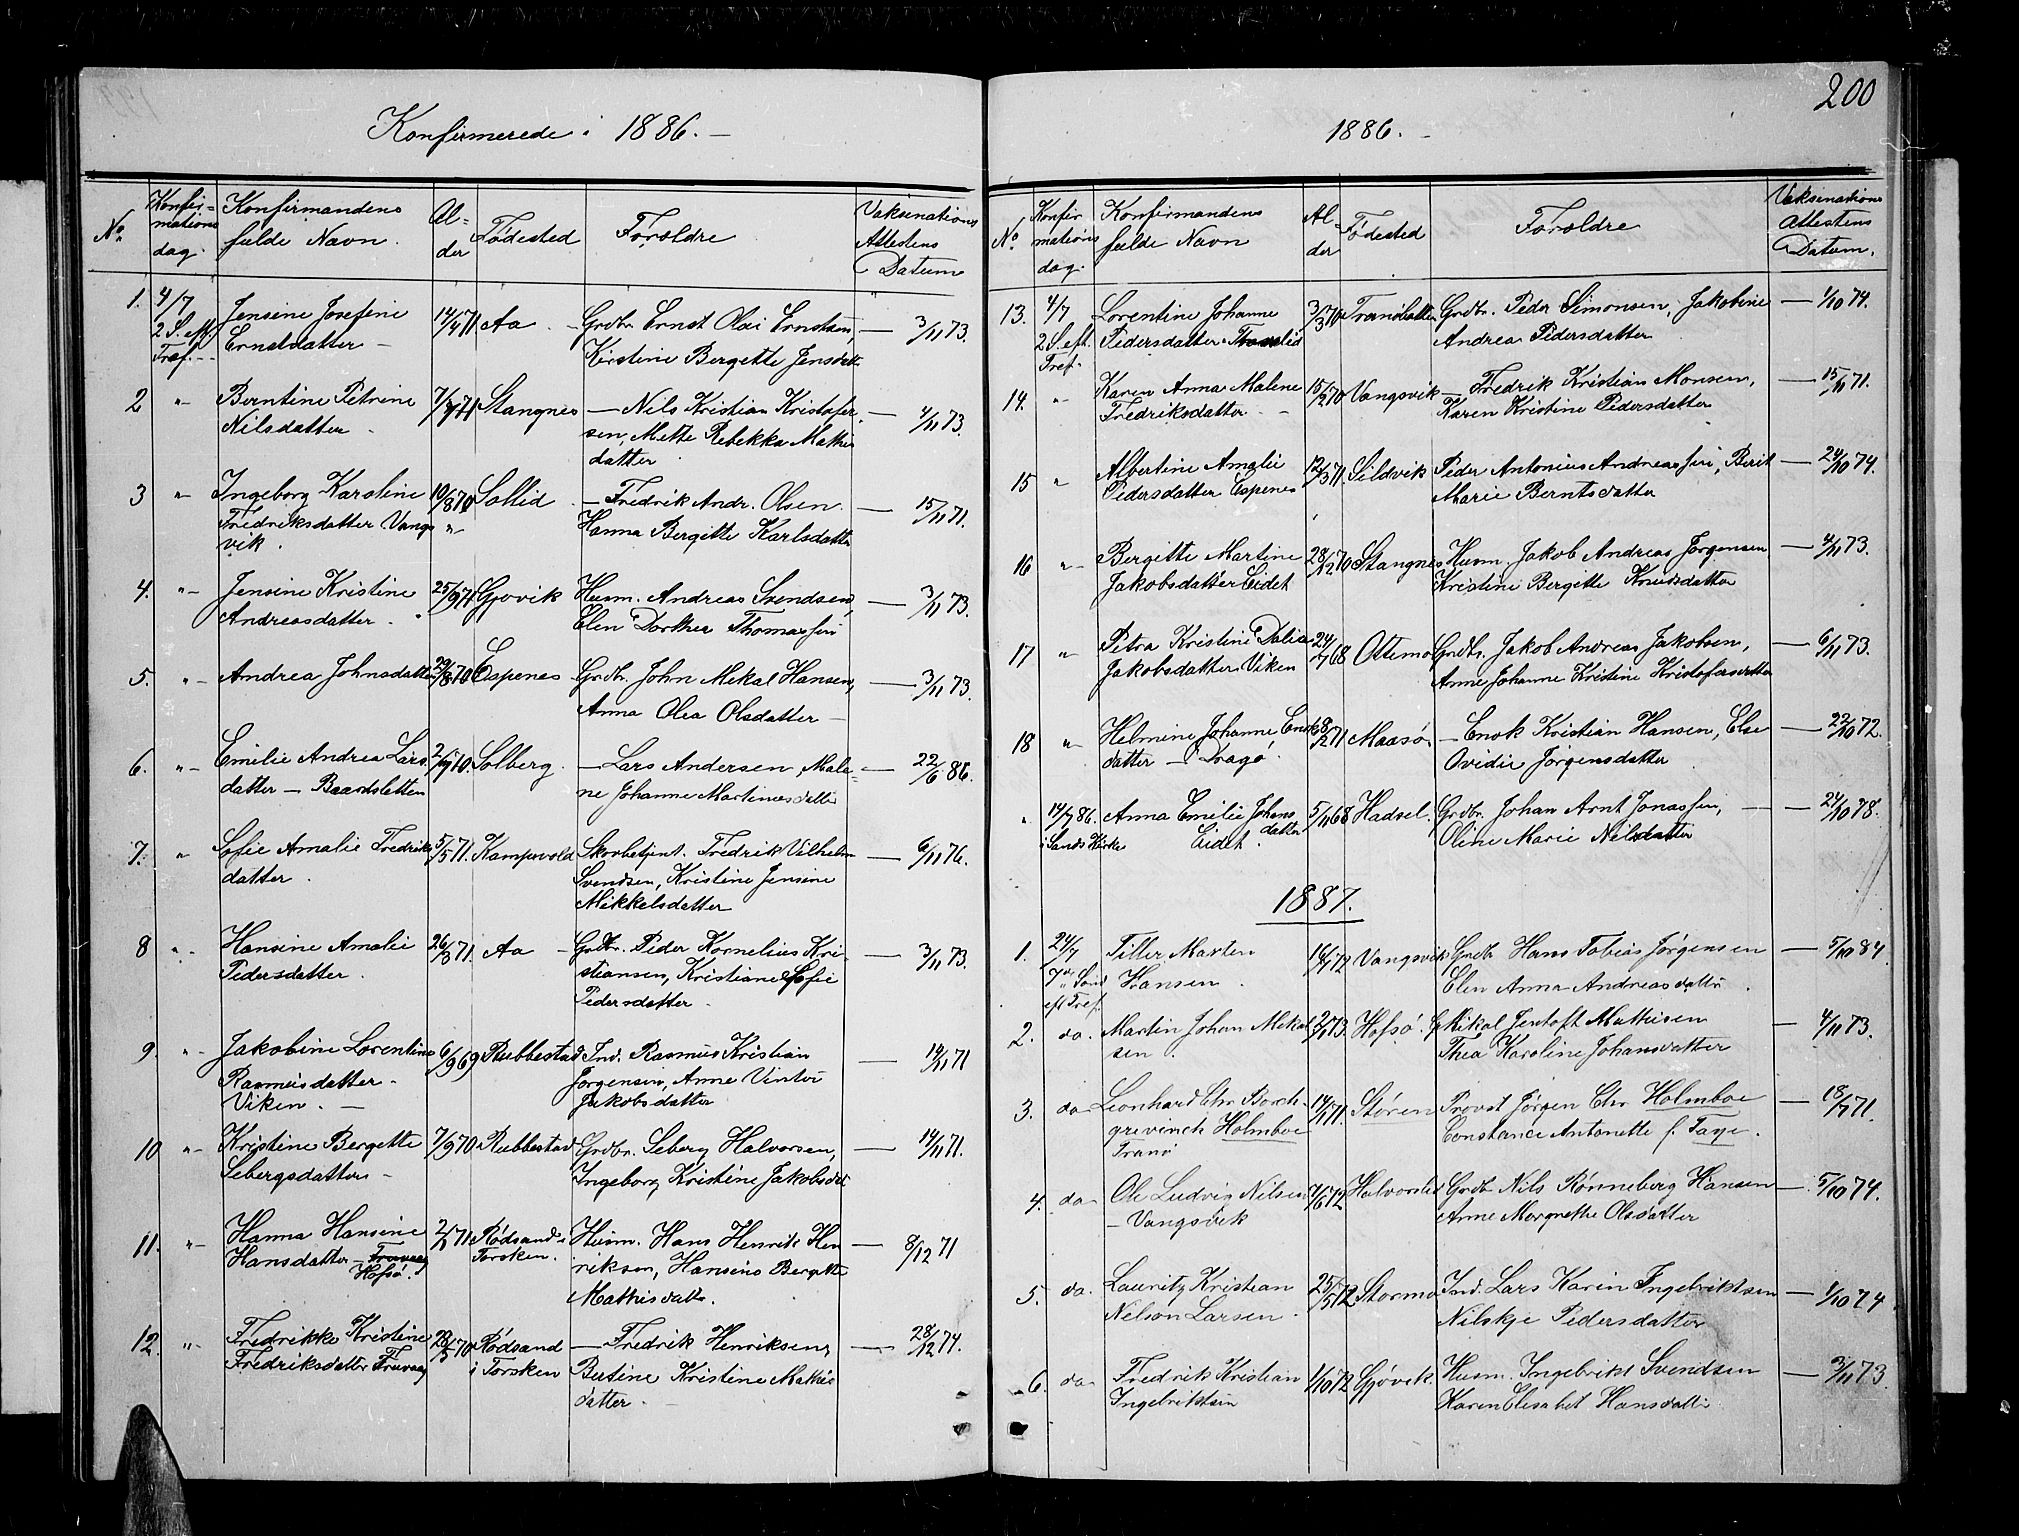 Konfirmerede i 1886. —
No.
Konfir-
mations
dag.
Konfirmandens
fulde Navn.
Al-
der
Fødested
Foroldre
Vaksinations
Attestens
Datum
1. 4/7 Jensine Josefine 14/4 71 Aa. Grdbr. Ernst Olai Ernstsen, — 3/11 73.
2 S. eft. Ernstdatter — Kirstine Bergitte Jensdatt
Tref.
2 " Berntine Petrine 71 Stangnes — Nils Kristian Kristofer — 4/11 73.
Nilsdatter. sen, Mette Rebekka Mathis
datter
3 " Ingeborg Karoline 10/8 70 Sollid — Fredrik Andr. Olsen. — 15/11 71.
Fredriksdatter Vangs " Hanna Bergitte Karlsdatter
vik.
4. " Jensine Kristine 25/9 71 Gjovik Husm. Andreas Svendsen, — 3/11 73.
Andreasdatter. Elen Dorthea Thomassen
5. " Andrea Johnsdatter 29/8 70 Espenes Grdbr. John Mikal Hansen, — 3/11 73.
Anna Olea Olsdatter —
6. " Emilie Andrea Lars 70. Solberg. — Lars Andersen, Male- — 22/6 86.
datter — Baardsletten ne Johanne Martinusdatter
7. " Sofie Amalie Fredriks 5/5 71. Kampevold Skovbetjent. Fredrik Vilhelm — 6/11 76.
datter. Svendsen, Kristine Jensine
Mikkelsdatter
8 " Hansine Amalie 26/3 71. Aa — Grdbr. Peder Kornelius Kri- — 3/11 73.
Pedersdatter. stiansen, Kristiane Sofie
Pedersdatter.
9. " Jakobine Lorentine 6/9 69 Rubbestad Ind. Rasmus Kristian — 14/11 71
Rasmusdatter. Jørgensen, Anne Vintør
Viken. — Jakobsdatter
10 " Kristine Bergette 7/9 70 Rubbestad Grdbr. Seberg Halvorsen, — 14/11 71.
Sebergsdatter — Ingeborg Kristine Jakobsdat
11. " Hanna Hansine 71 Rødsand i Husm. Hans Henrik Hen — 8/12 71
Hansdatter — Truvaag Torsken. riksen, Hansine Bergitte
Hofsø. Mathisdatter.
12. " Fredrikke Kristine 70 Rødsand — Fredrik Henriksen, — 28/12 74.
Fredriksdatter Truvaag i Torsken Bertine Kristine Mathis
datter.
200
1886. —
No.
Konfir
mations
dag.
Konfirmandens
fulde Navn
Al-
der
Fødested
Foroldre
Vaksinations
Attestens
Datum.
13. 4/7 Lorentine Johanne 3/3 70 Tranøbotten Grdbr. Peder Simonsen, Jakobine — 1/10 74.
2 S. eft. Pedersdatter Andrea Pedersdatter
Tref.
14. " Karen Anna Malene 15/2 70 Vangsvik — Fredrik Kristian Monsen, — 15/11 71.
Fredriksdatter — Karen Kristine Pedersdatter
15 " Albertine Amalie 12/3 71. Sildvik Peder Antonius Andreassen, Berit — 24/10 74.
Pedersdatter Espenes Marie Berntsdatter
16 " Bergitte Martine 28/12 70 Stangnes Husm. Jakob Andreas Jørgensen — 4/11 73.
Jakobsdatter Eidet Kristine Bergitte Knudsdatter
17 " Petra Kristine Dalia 24/7 68 Ottemo Grdbr. Jakob Andreas Jakobsen, — 6/11 73.
Jakobsdatter Viken Anne Johanne Kristine Kristofersdatter
18 " Helmine Johanne Enoks 8/2 71 Maasø — Enok Kristian Hansen, Else — 22/10 72.
datter — Dragø. Ovidie Jørgensdatter
" 14/7 86. Anna Emilie Johans 5/11 68 Hadsel. Grdbr. Johan Arnt Jonassen, — 24/10 78.
i Sands Kirke datter Eidet. Oline Marie Nilsdatter
1887.
1. 24/7 Tiller Marten 72 Vangsvik Grdb Hans Tobias Jørgensen — 5/10 84.
7de Sønd Hansen. Elen Anna Andreasdatter.
eft Tref.
2. do. Martin Johan Mikal 73 Hofsø. G. Mikal Jentoft Mathisen — 4/11 73.
sen. Thea Karoline Johansdatter
3. do Leonhard Chr Borch- 14/1 71. Støren Provst Jørgen Chr Holmboe — 18/7 71.
grevinck Holmboe Constance Antonette f. Faye.
Tranø
4. do Ole Ludvig Nilsen 7/6 72 Halvorslid Grdb Nils Rønneberg Hansen — 5/10 74.
— Vangsvik Anne Margrethe Olsdatter
5. do. Lauritz Kristian 25/5 72 Stormo Ind. Lars Karin Ingebriktsen — 1/10 74
Nelson Larsen. Nilskje Pedersdatter
6. do Fredrik Kristian 1/10 72 Gjøvik Husm. Ingebrikt Svendsen — 3/11 73.
Ingebriktsen Karen Elisabet Hansdatter